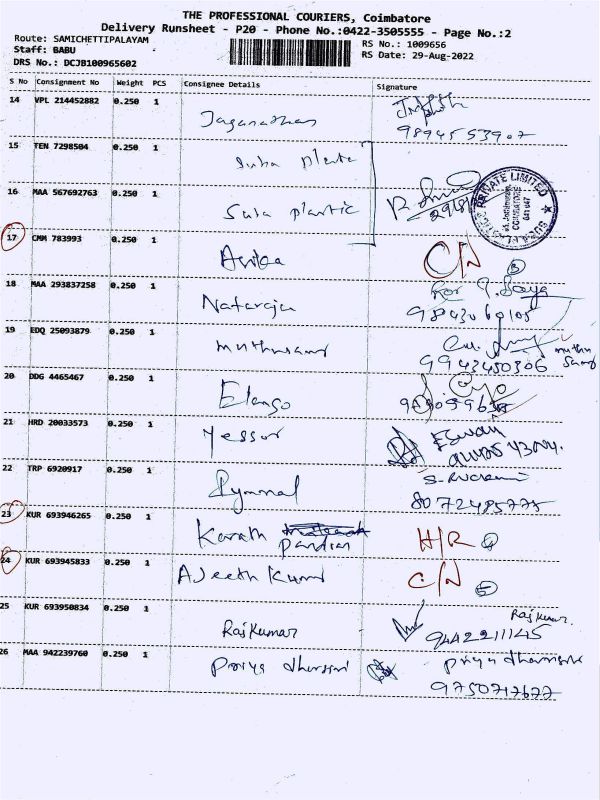 THE PROFESSIONAL COURIERS, Coimbatore
Delivery Runsheet - P20 - Phone No.:0422-3505555 - Page No.:2
Route: SAMICHETTIPALAYAM
RS No.: 1009656
Staff: BABU
RS Date: 29-Aug-2022
DRS No.: DCJB100965602
S No Consignment No Weight PCS Consignee Details Signature
14 VPL 214452882 0.250 1
Jaganathan
9894553907
15 TEN 7298504 0.250 1
16 MAA 567692763 0.250 1
Suba plastic
PRIVATE LIMITED
COIMBATORE
641 047
17 CMM 783993 0.250 1
C/N 3
18 MAA 293837258 0.250 1
Nataraju
19 EDQ 25093879 0.250 1
Muthusami
9943450306
muthu
Samy
20 DDG 4465467 0.250 1
Elango
21 HRD 20033573 0.250 1
Eswari
22 TRP 6920917 0.250 1
8072485775
23 KUR 693946265 0.250 1
Karath
pandian
H/R 4
24 KUR 693945833 0.250 1
AJeeth Kumar
C/N 5
25 KUR 693950834 0.250 1
RajKumar
RajKumar
9442211145
26 MAA 942239760 0.250 1
Priya dharsini
9750717677